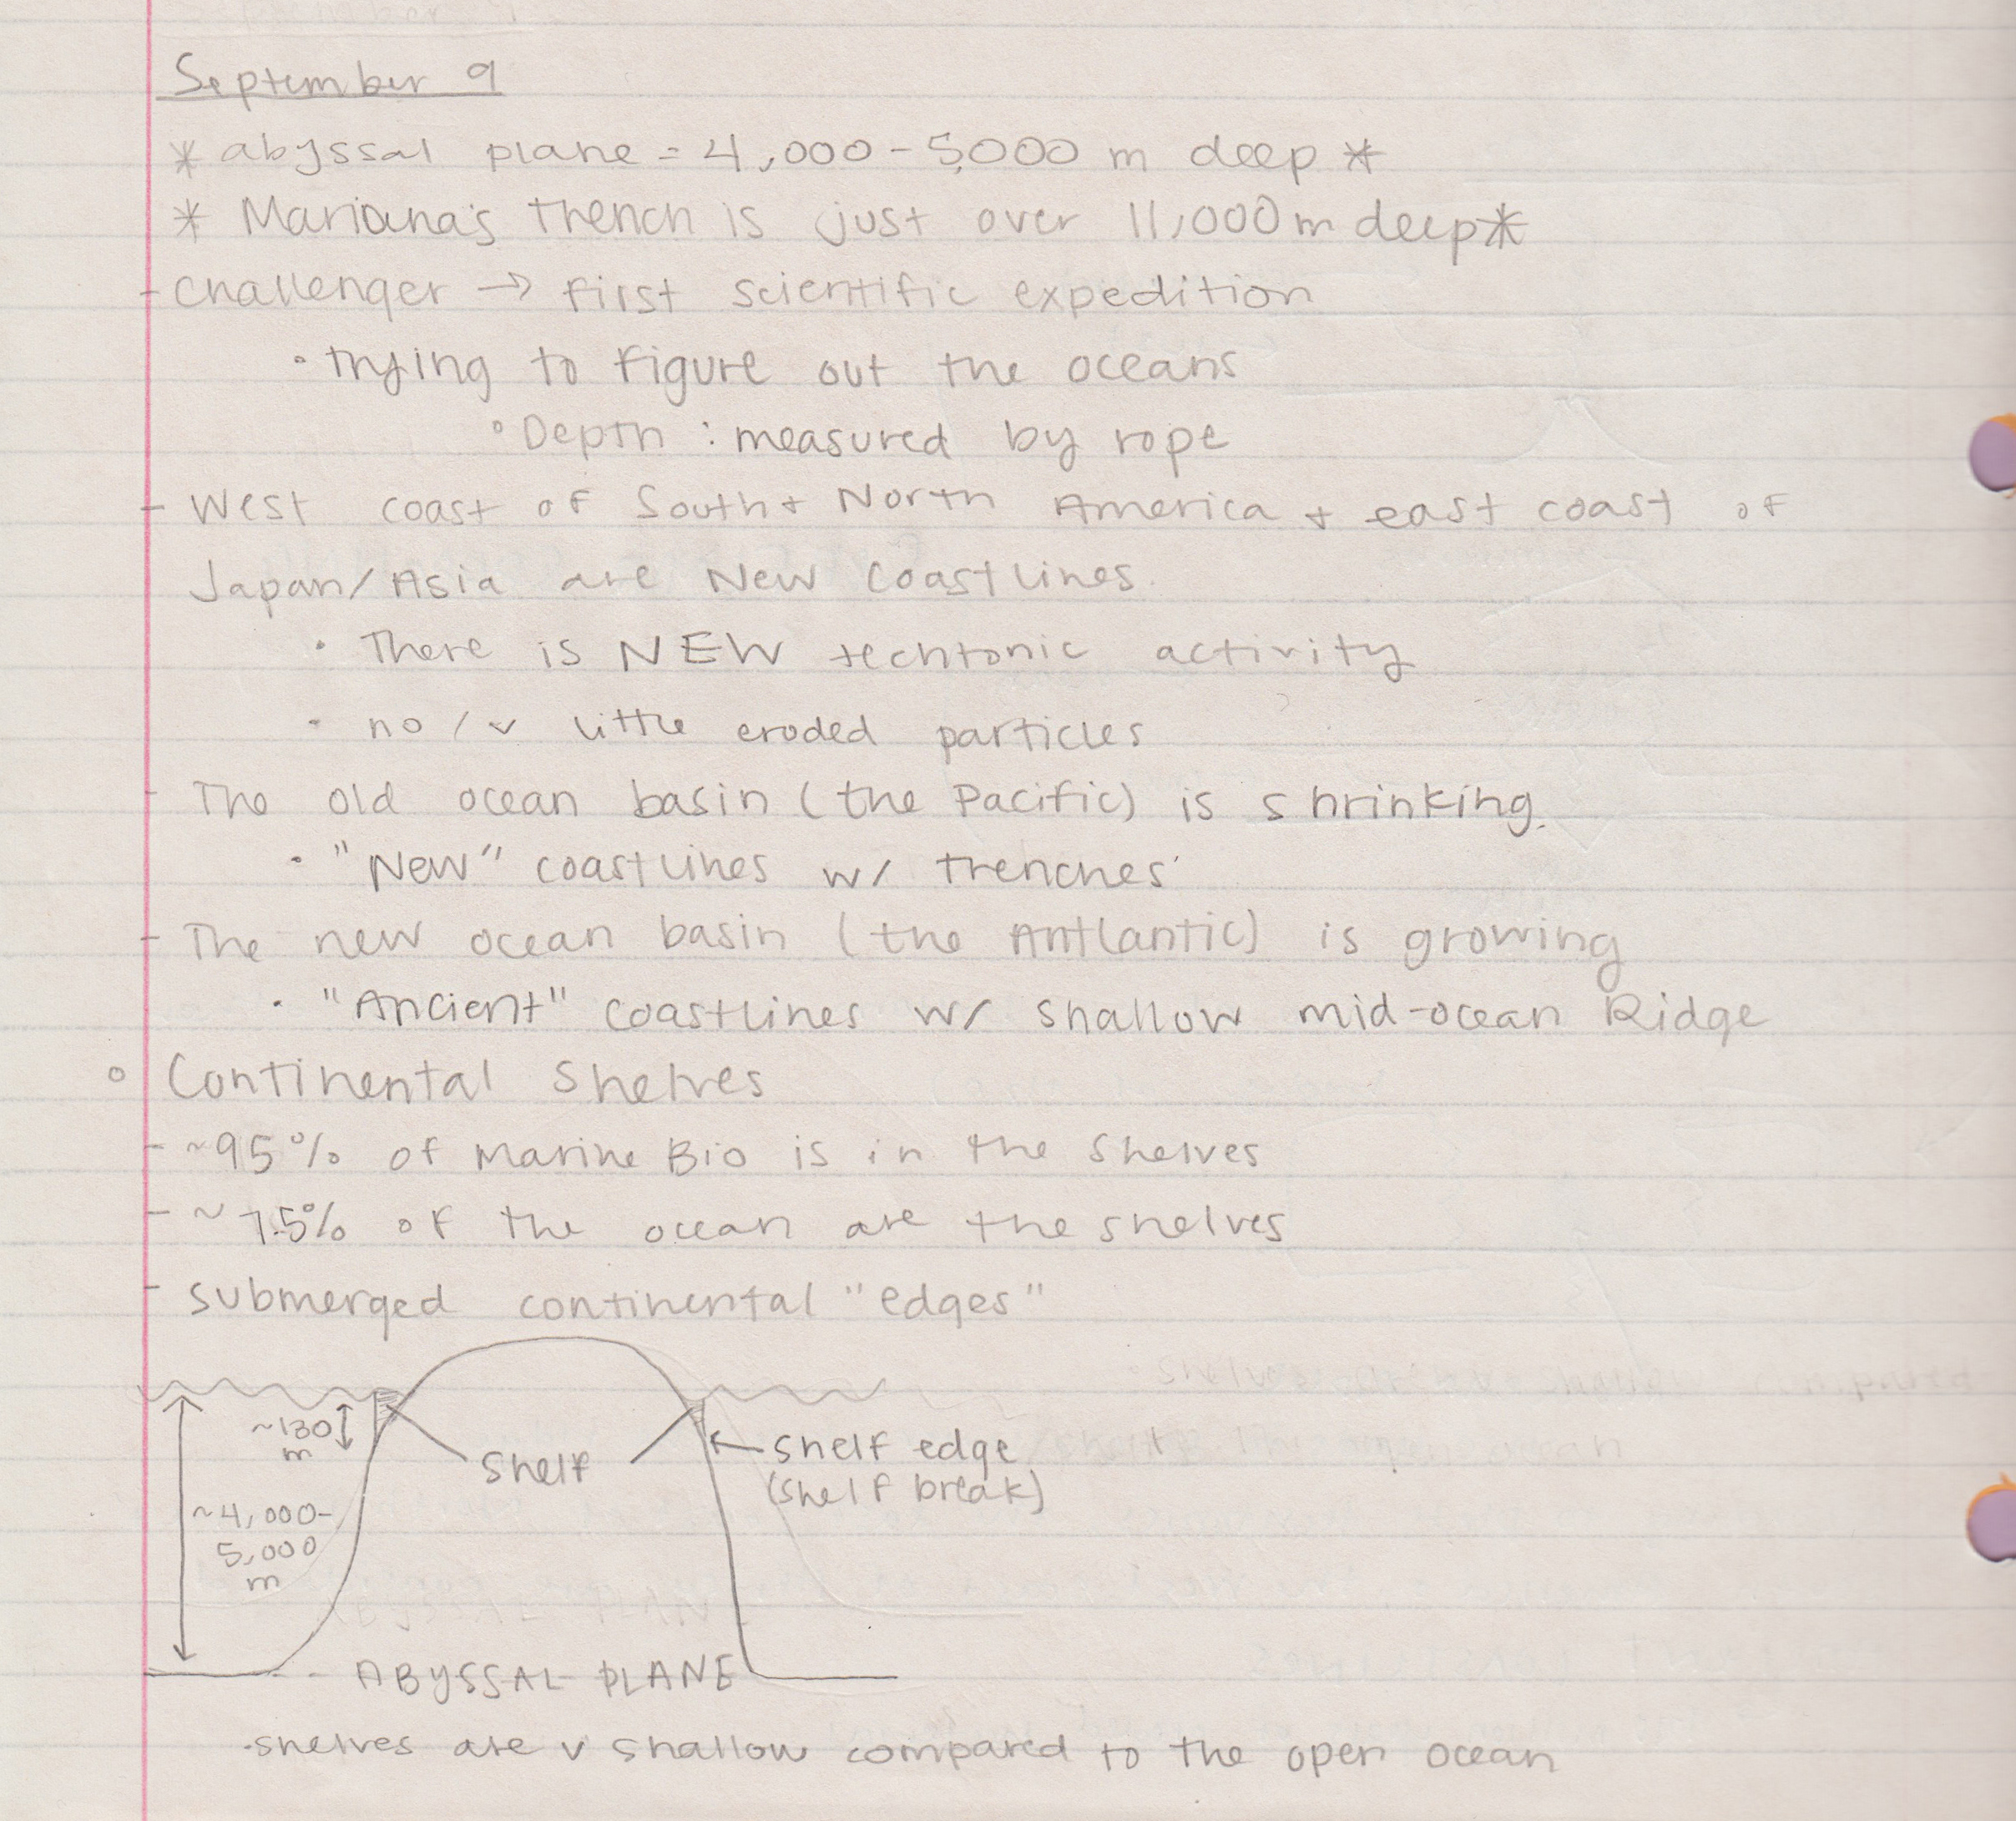 September 9
* abyssal plane = 4,000 - 5,000 m deep *
* Mariana's Trench is just over 11,000 m deep *
- Challenger → first scientific expedition
• trying to figure out the oceans
° Depth : measured by rope
- West coast of South + North America + east coast of
Japan/Asia are New Coastlines.
• There is NEW techtonic activity
• no / v little eroded particles
- The old ocean basin (the Pacific) is shrinking.
• "New" coastlines w/ trenches
- The new ocean basin (the Antlantic) is growing
• "Ancient" coastlines w/ shallow mid-ocean Ridge
° Continental Shelves
- ~95% of Marine Bio is in the Shelves
- ~7.5% of the ocean are the shelves
- submerged continental "edges"
~130
m
Shelf
shelf edge
(shelf break)
~4,000-
5,000
m
ABYSSAL PLANE
• shelves are v shallow compared to the open ocean